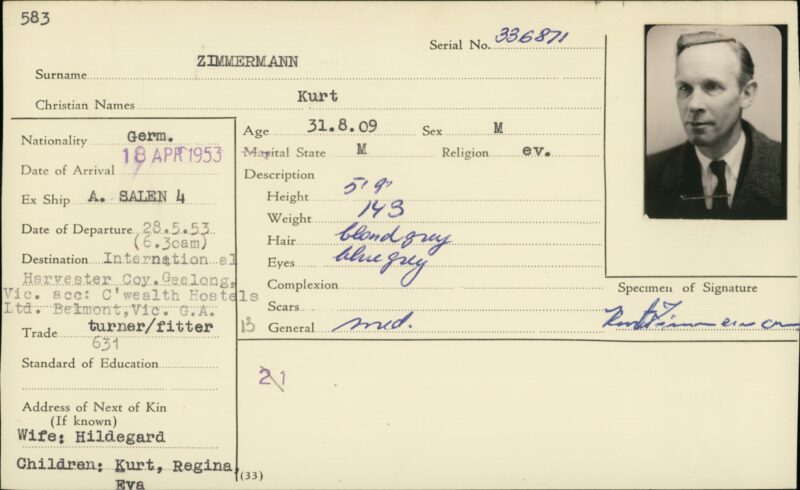 583
Serial No. 336871
Surname ZIMMERMANN
Christian Names Kurt
Nationality Germ.
Date of Arrival 18 APR 1953
Ex Ship A. SALEN 4
Date of Departure 28.5.53
(6.30am)
Destination International
Harvester Coy. Geelong,
Vic. acc: C'wealth Hostels
Ltd. Belmont, Vic. G.A.
Trade turner/fitter
631
Standard of Education
Address of Next of Kin
(If known)
Wife: Hildegard
Children: Kurt, Regina,
Eva
Age 31.8.09 Sex M
Marital State M Religion ev.
Description
Height 5'9"
Weight 143
Hair blond grey
Eyes blue grey
Complexion
Scars
13 General med.
21
(33)
Specimen of Signature
Kurt Zimmermann